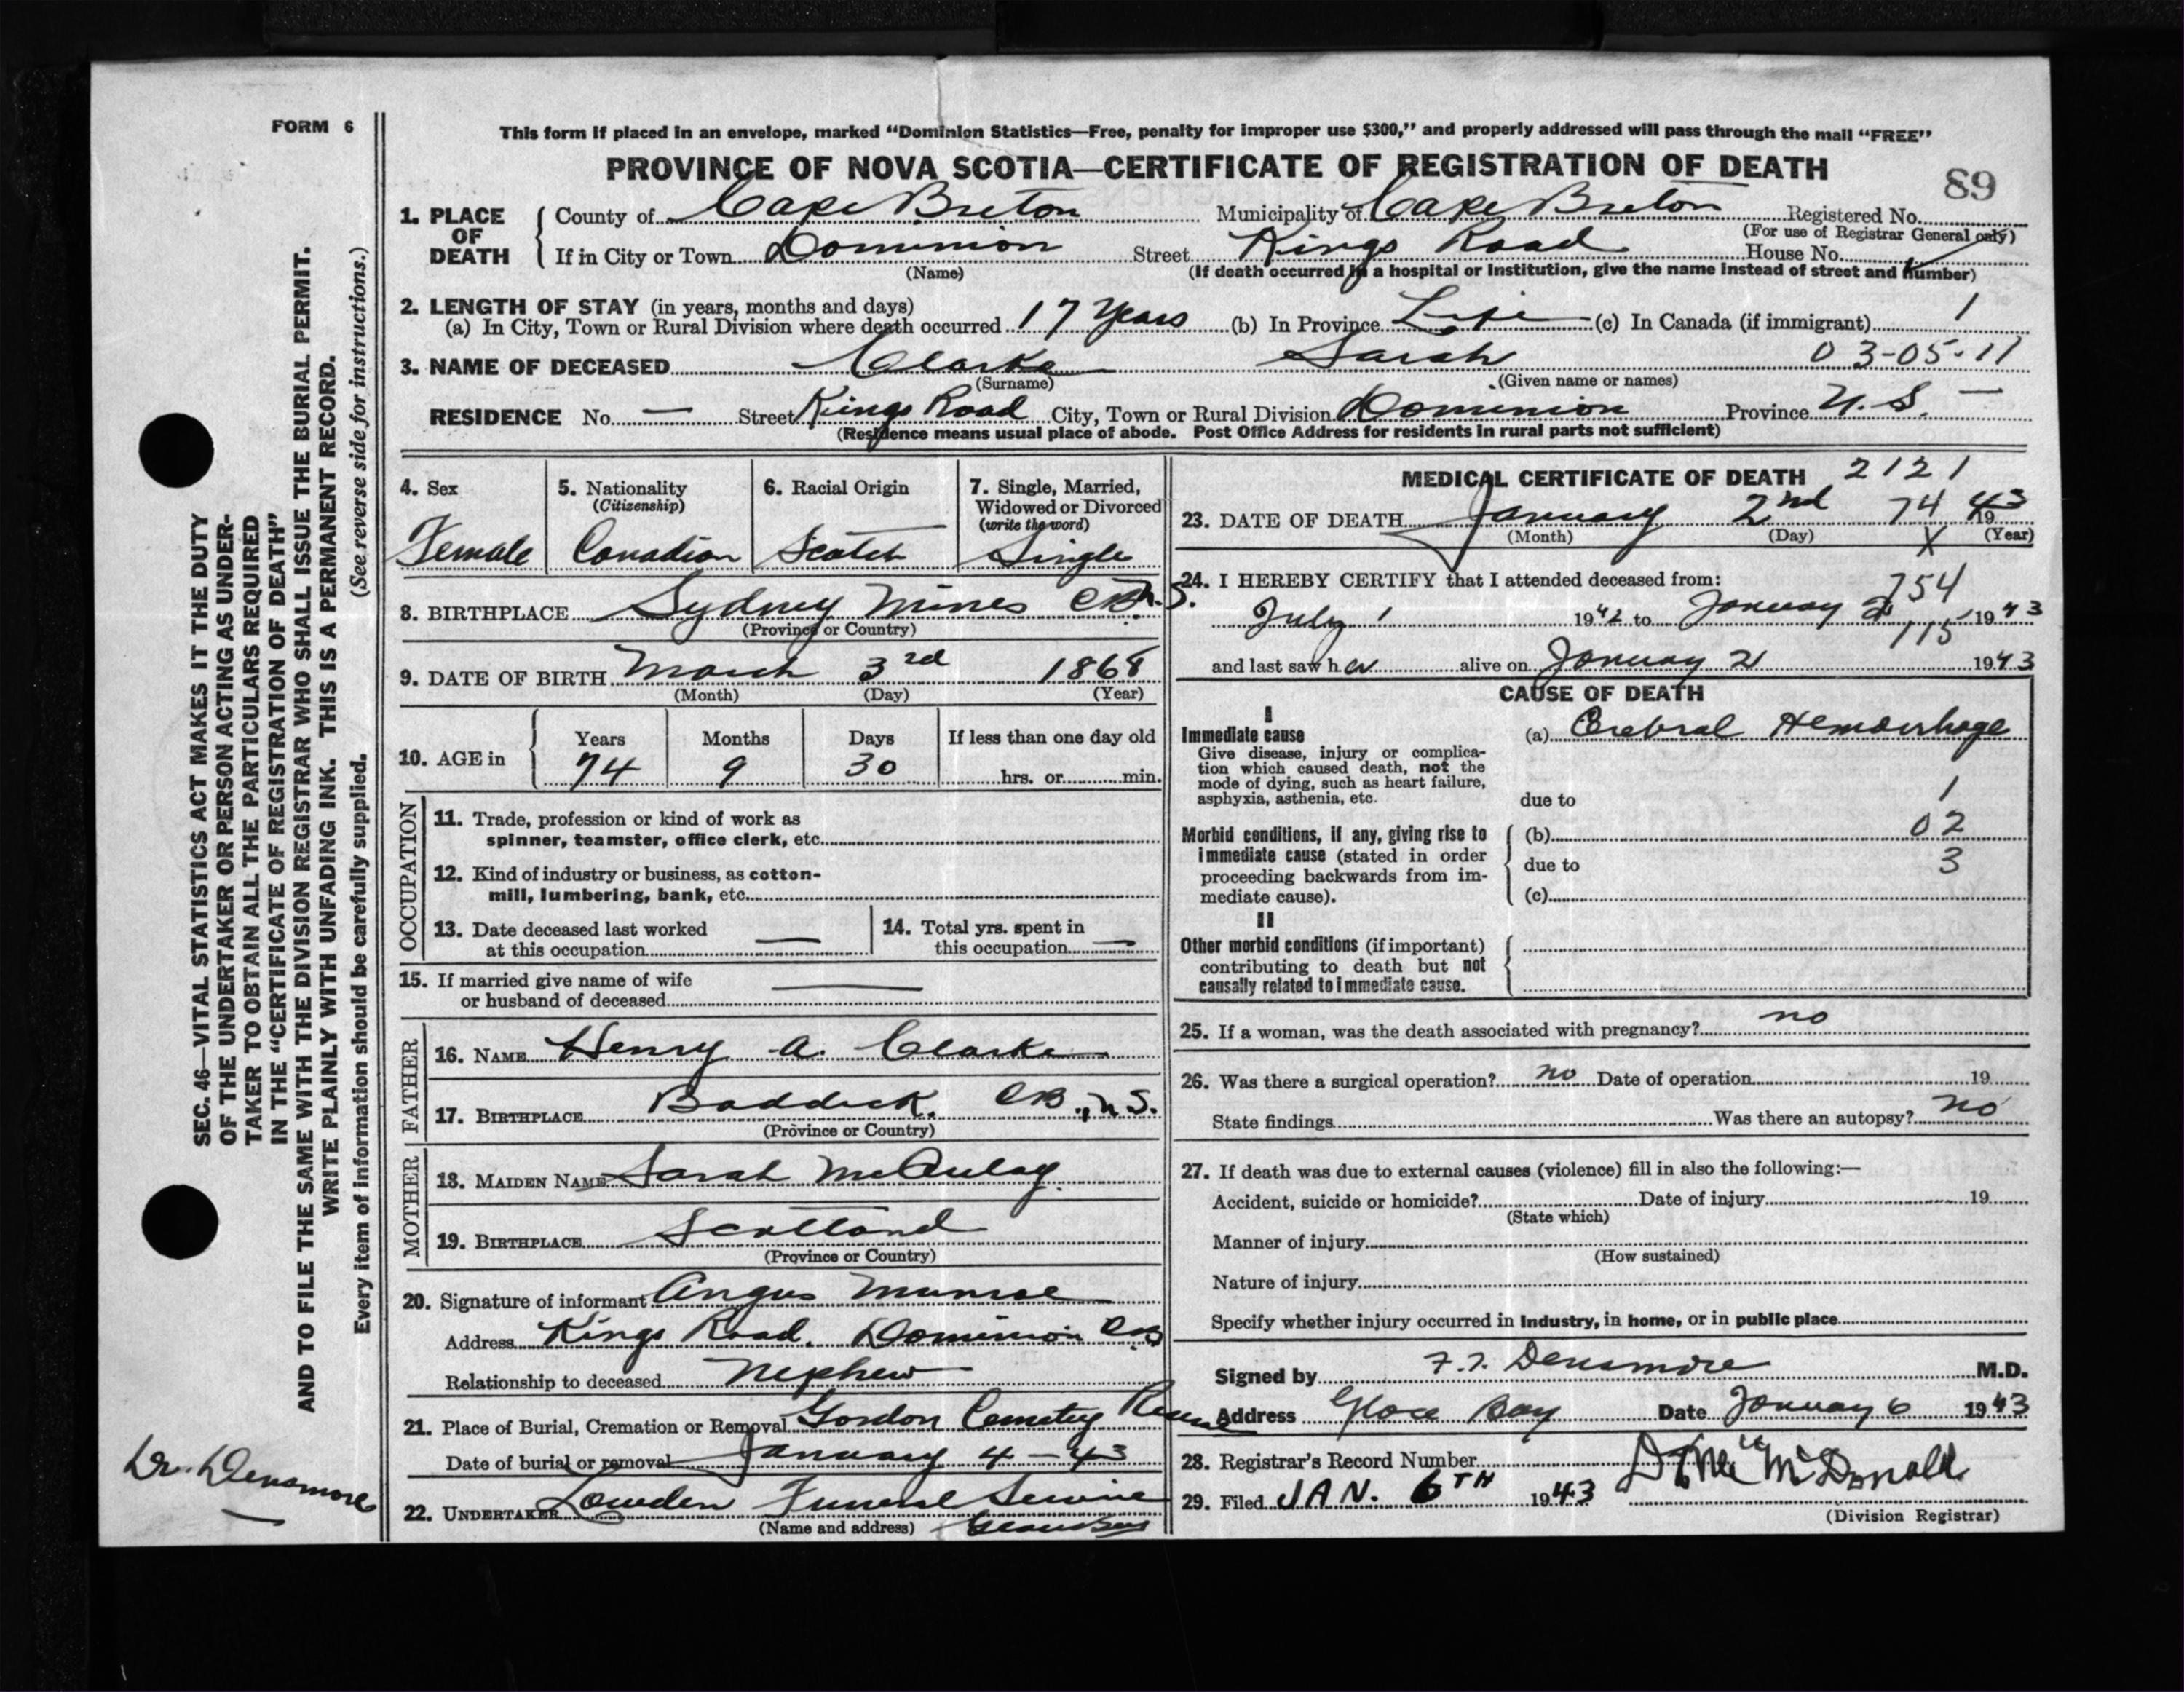 FORM 6
This form if placed in an envelope, marked "Dominion Statistics—Free, penalty for improper use $300," and properly addressed will pass through the mail "FREE"
PROVINCE OF NOVA SCOTIA—CERTIFICATE OF REGISTRATION OF DEATH
89
1. PLACE OF DEATH
County of Cape Breton Municipality of Cape Breton Registered No.
(For use of Registrar General only)
If in City or Town Dominion Street Kings Road House No.
(Name) (If death occurred in a hospital or institution, give the name instead of street and number)
2. LENGTH OF STAY (in years, months and days)
(a) In City, Town or Rural Division where death occurred 17 years (b) In Province Life (c) In Canada (if immigrant) 1
3. NAME OF DECEASED Clarke Sarah 03-05-11
(Surname) (Given name or names)
RESIDENCE No. — Street Kings Road City, Town or Rural Division Dominion Province N.S. —
(Residence means usual place of abode. Post Office Address for residents in rural parts not sufficient)
4. Sex
Female
5. Nationality
(Citizenship)
Canadian
6. Racial Origin
Scotch
7. Single, Married, Widowed or Divorced
(write the word)
Single
8. BIRTHPLACE Sydney Mines CB N.S.
(Province or Country)
9. DATE OF BIRTH March 3rd 1868
(Month) (Day) (Year)
10. AGE in
Years Months Days If less than one day old
74 9 30 hrs. or min.
OCCUPATION
11. Trade, profession or kind of work as
spinner, teamster, office clerk, etc.
12. Kind of industry or business, as cotton-
mill, lumbering, bank, etc.
13. Date deceased last worked
at this occupation —
14. Total yrs. spent in
this occupation —
15. If married give name of wife
or husband of deceased —
FATHER
16. NAME Henry A. Clarke
17. BIRTHPLACE Baddeck, CB., N.S.
(Province or Country)
MOTHER
18. MAIDEN NAME Sarah McAulay
19. BIRTHPLACE Scotland
(Province or Country)
20. Signature of informant Angus Munroe
Address Kings Road, Dominion CB
Relationship to deceased Nephew
21. Place of Burial, Cremation or Removal Gordon Cemetery Reserve
Date of burial or removal January 4 - 43
22. UNDERTAKER Lowden Funeral Service
(Name and address) Glace Bay
MEDICAL CERTIFICATE OF DEATH 2121
23. DATE OF DEATH January 2nd 74 1943
(Month) (Day) X (Year)
24. I HEREBY CERTIFY that I attended deceased from: 754
July 1 1942 to January 2 1943
115
and last saw her alive on January 2 1943
CAUSE OF DEATH
I
Immediate cause
Give disease, injury or complica-
tion which caused death, not the
mode of dying, such as heart failure,
asphyxia, asthenia, etc.
(a) Cerebral Hemorrhage
due to 1
Morbid conditions, if any, giving rise to
immediate cause (stated in order
proceeding backwards from im-
mediate cause).
(b) 02
due to 3
(c)
II
Other morbid conditions (if important)
contributing to death but not
causally related to immediate cause.
25. If a woman, was the death associated with pregnancy? no
26. Was there a surgical operation? no Date of operation 19
State findings Was there an autopsy? no
27. If death was due to external causes (violence) fill in also the following:—
Accident, suicide or homicide? Date of injury 19
(State which)
Manner of injury
(How sustained)
Nature of injury
Specify whether injury occurred in Industry, in home, or in public place
Signed by F.T. Densmore M.D.
Address Glace Bay Date January 6 1943
28. Registrar's Record Number
29. Filed JAN. 6TH 1943
McDonald
(Division Registrar)
SEC. 46—VITAL STATISTICS ACT MAKES IT THE DUTY
OF THE UNDERTAKER OR PERSON ACTING AS UNDER-
TAKER TO OBTAIN ALL THE PARTICULARS REQUIRED
IN THE "CERTIFICATE OF REGISTRATION OF DEATH"
AND TO FILE THE SAME WITH THE DIVISION REGISTRAR WHO SHALL ISSUE THE BURIAL PERMIT.
WRITE PLAINLY WITH UNFADING INK. THIS IS A PERMANENT RECORD.
Every item of information should be carefully supplied. (See reverse side for instructions.)
Dr. Densmore